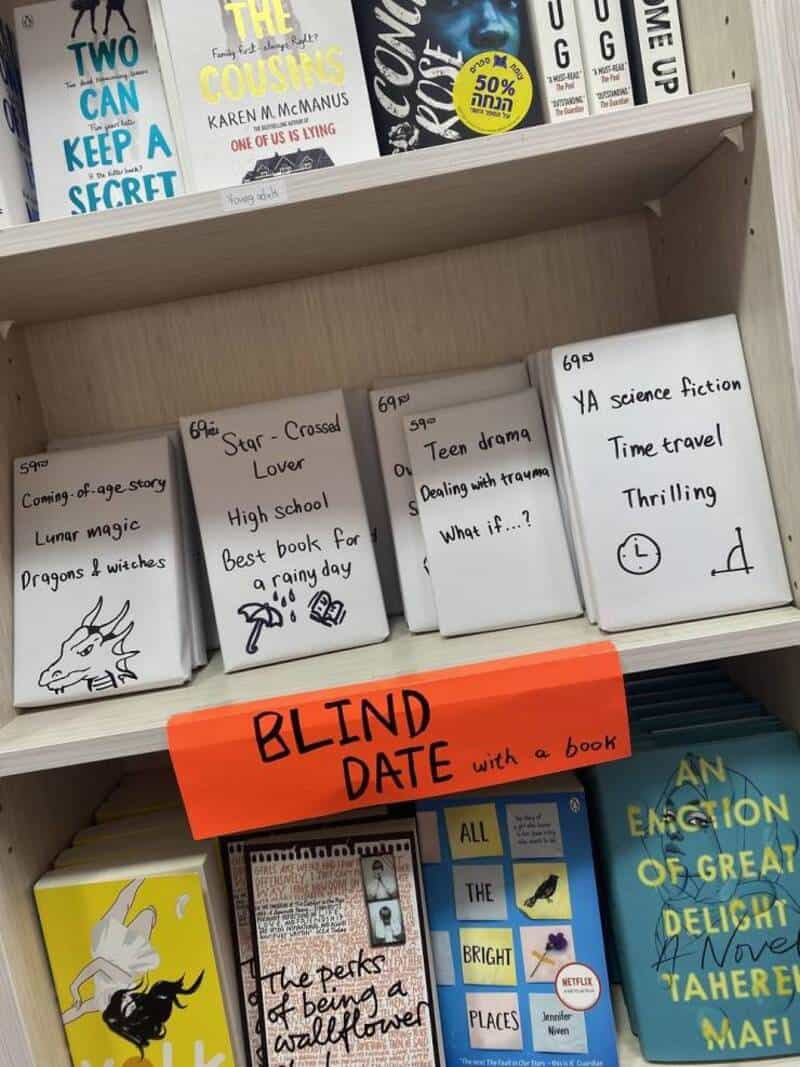 TWO
CAN
KEEP A
SECRET
THE
Family first - always. Right?
COUSINS
KAREN M. McMANUS
THE BESTSELLING AUTHOR OF
ONE OF US IS LYING
CONC
ROSE
50%
הנחה
UG
"A MUST-READ"
The Pool
"OUTSTANDING"
The Guardian
UG
"A MUST-READ"
The Pool
"OUTSTANDING"
The Guardian
OME UP
Young adult
59₪
Coming-of-age story
Lunar magic
Dragons & witches
69₪
Star-Crossed
Lover
High school
Best book for
a rainy day
69₪
59₪
Teen drama
Dealing with trauma
What if...?
69₪
YA science fiction
Time travel
Thrilling
BLIND
DATE with a book
Yolk
The perks
of being a
wallflower
ALL
THE
BRIGHT
PLACES
NETFLIX
Jennifer
Niven
AN
EMOTION
OF GREAT
DELIGHT
A Novel
TAHEREH
MAFI